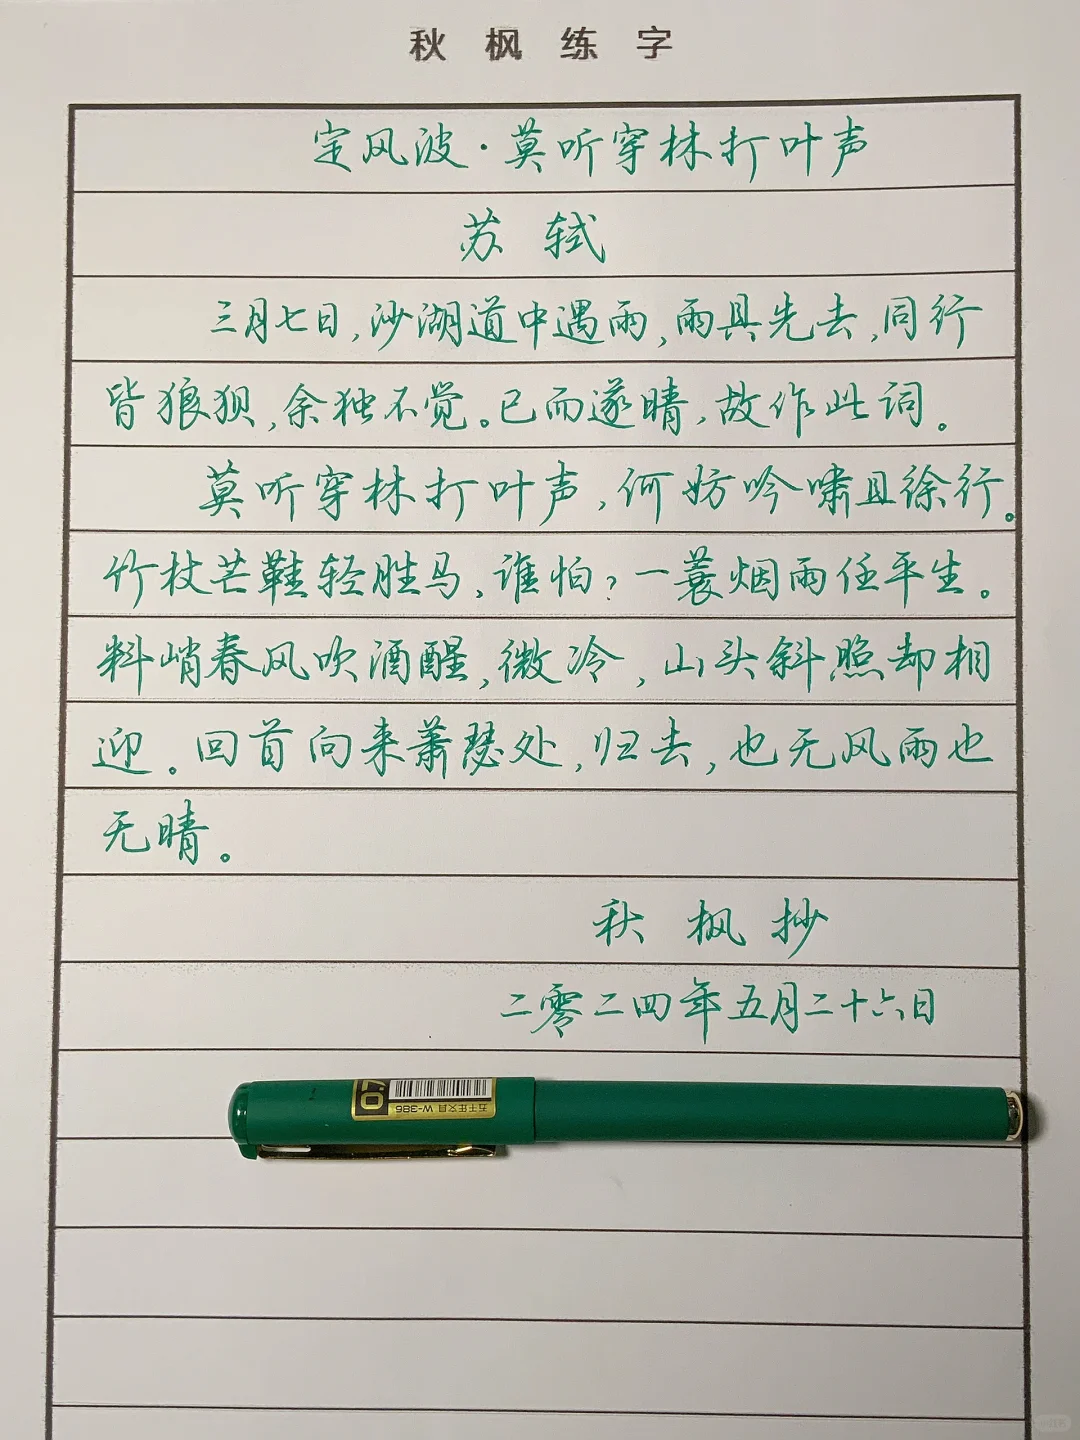 秋枫练字
定风波·莫听穿林打叶声
苏轼
三月七日,沙湖道中遇雨,雨具先去,同行
皆狼狈,余独不觉。已而遂晴,故作此词。
莫听穿林打叶声,何妨吟啸且徐行。
竹杖芒鞋轻胜马,谁怕?一蓑烟雨任平生。
料峭春风吹酒醒,微冷,山头斜照却相
迎。回首向来萧瑟处,归去,也无风雨也
无晴。
秋枫抄
二零二四年五月二十六日
7.0
五千年文具 W-386